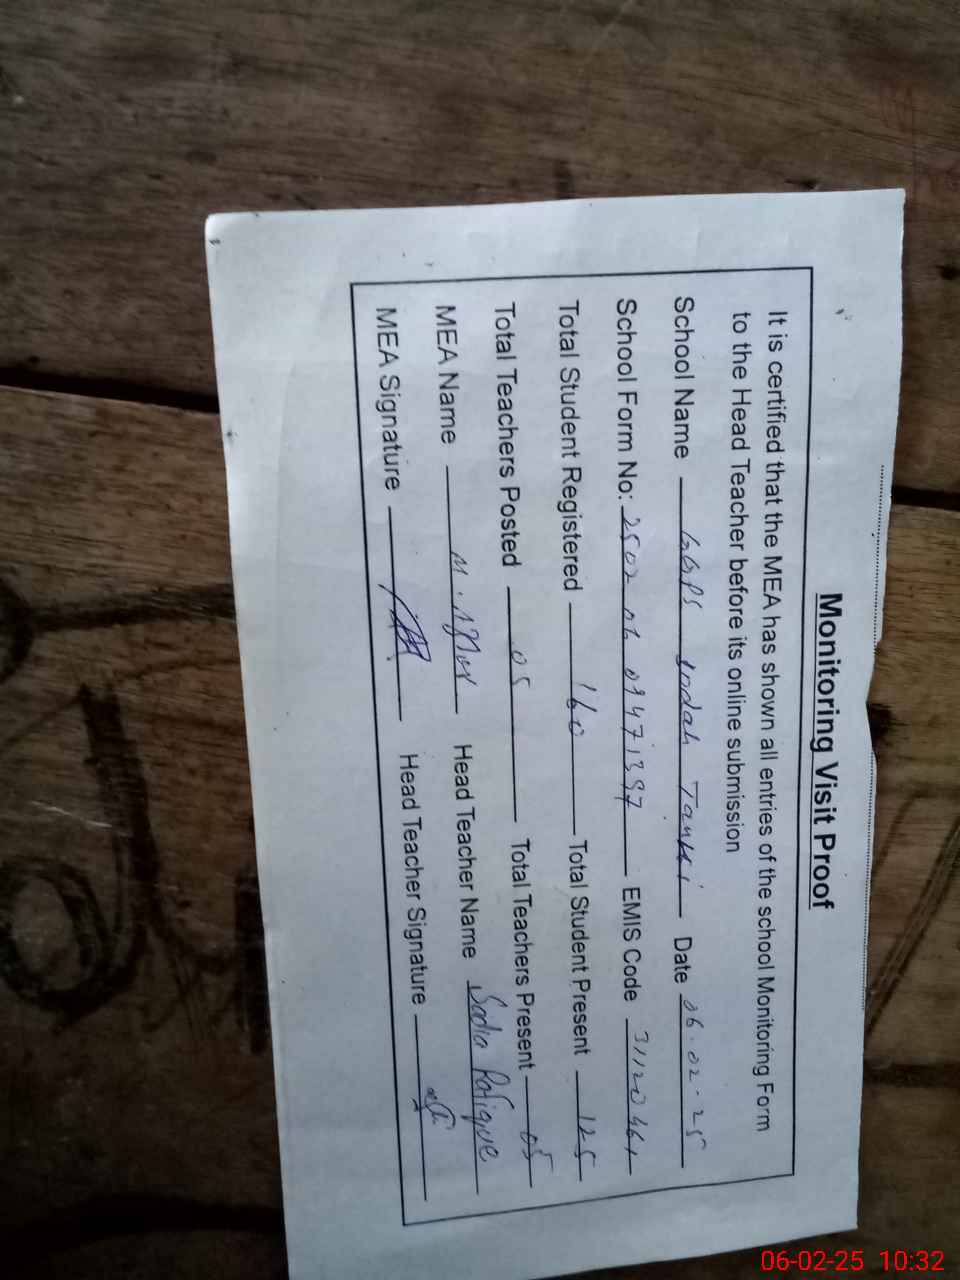 Monitoring Visit Proof
It is certified that the MEA has shown all entries of the school Monitoring Form
to the Head Teacher before its online submission
School Name GGPS Tanki Date 06-02-25
School Form No: EMIS Code
Total Student Registered 160 Total Student Present 125
Total Teachers Posted 05 Total Teachers Present 05
MEA Name M. Head Teacher Name Sadia Rafique
MEA Signature Head Teacher Signature
06-02-25 10:32